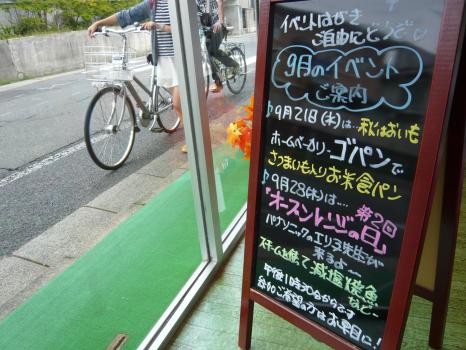 イベントはがき
ご自由にどうぞ
9月のイベント
ご案内
♪9月21日(木)は…秋はおいも
ホームベーカリーゴパンで
さつまいも入りお米食パン
♪9月28(木)は…
第2回
「オーブンレンジの日」
パナソニックのエリヌ先生が
来るよ～
スチーム土焼で減塩焼魚
など…
午後1時30分からです
参加ご希望の方はお早目に!